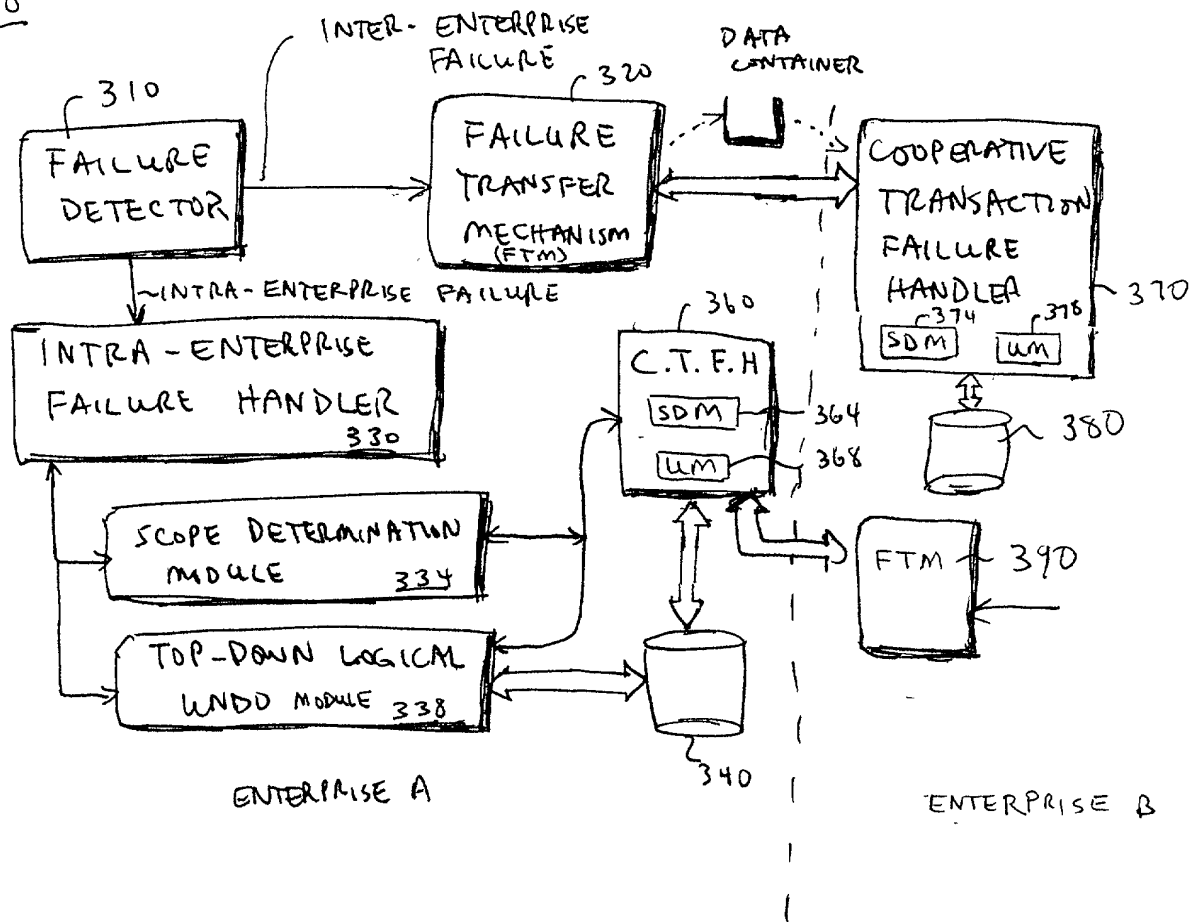 INTER-ENTERPRISE
FAILURE
DATA
CONTAINER
310
320
FAILURE
DETECTOR
FAILURE
TRANSFER
MECHANISM
(FTM)
COOPERATIVE
TRANSACTION
FAILURE
HANDLER
370
374
378
SDM
UM
INTRA-ENTERPRISE FAILURE
INTRA-ENTERPRISE
FAILURE HANDLER
330
360
C.T.F.H
SDM
364
UM
368
380
SCOPE DETERMINATION
MODULE 334
FTM
390
TOP-DOWN LOGICAL
UNDO MODULE 338
340
ENTERPRISE A
ENTERPRISE B